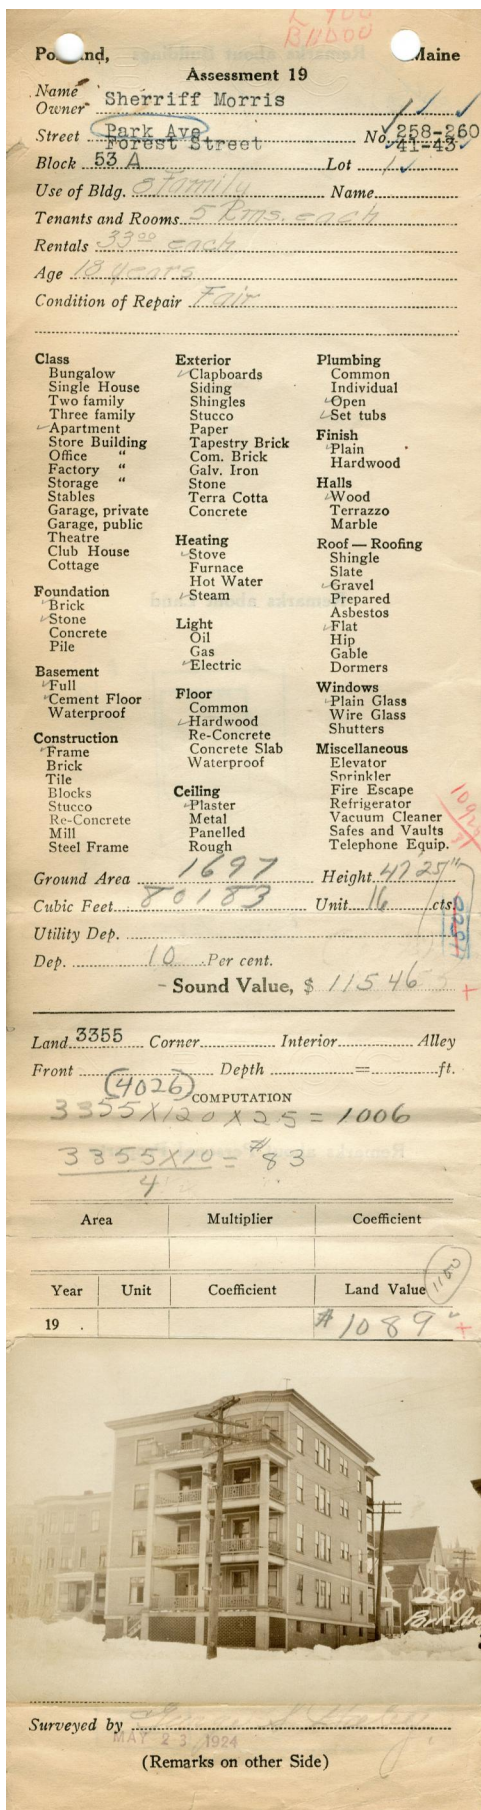 L 900
B 11000
Portland, Maine
Assessment 19
Name
Owner Sherriff Morris 1
Street Park Ave No. 258-260
Forest Street 41-43
Block 53 A Lot 1
Use of Bldg. 8 Family Name
Tenants and Rooms 5 Rms. each
Rentals 33 00 each
Age 18 years
Condition of Repair Fair
Class
Bungalow
Single House
Two family
Three family
Apartment
Store Building
Office "
Factory "
Storage "
Stables
Garage, private
Garage, public
Theatre
Club House
Cottage
Foundation
Brick
Stone
Concrete
Pile
Basement
Full
Cement Floor
Waterproof
Construction
Frame
Brick
Tile
Blocks
Stucco
Re-Concrete
Mill
Steel Frame
Exterior
Clapboards
Siding
Shingles
Stucco
Paper
Tapestry Brick
Com. Brick
Galv. Iron
Stone
Terra Cotta
Concrete
Heating
Stove
Furnace
Hot Water
Steam
Light
Oil
Gas
Electric
Floor
Common
Hardwood
Re-Concrete
Concrete Slab
Waterproof
Ceiling
Plaster
Metal
Panelled
Rough
Plumbing
Common
Individual
Open
Set tubs
Finish
Plain
Hardwood
Halls
Wood
Terrazzo
Marble
Roof — Roofing
Shingle
Slate
Gravel
Prepared
Asbestos
Flat
Hip
Gable
Dormers
Windows
Plain Glass
Wire Glass
Shutters
Miscellaneous
Elevator
Sprinkler
Fire Escape
Refrigerator
Vacuum Cleaner
Safes and Vaults
Telephone Equip.
Ground Area 1697 Height 47'25"
Cubic Feet 80183 Unit 16 cts.
Utility Dep.
Dep. 10 Per cent.
Sound Value, $ 11546
Land 3355 Corner Interior Alley
Front Depth = ft.
(4026) COMPUTATION
3355 X 120 X 25 = 1006
3355 X 10 = #83
4
Area Multiplier Coefficient
Year Unit Coefficient Land Value 1150
19 . #1089
260
Park Ave
Surveyed by
MAY 23 1924
(Remarks on other Side)